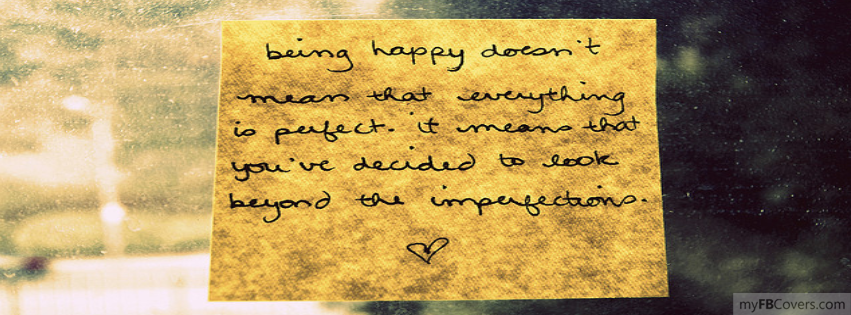 being happy doesn't
mean that everything
is perfect. it means that
you've decided to look
beyond the imperfections.
myFBCovers.com